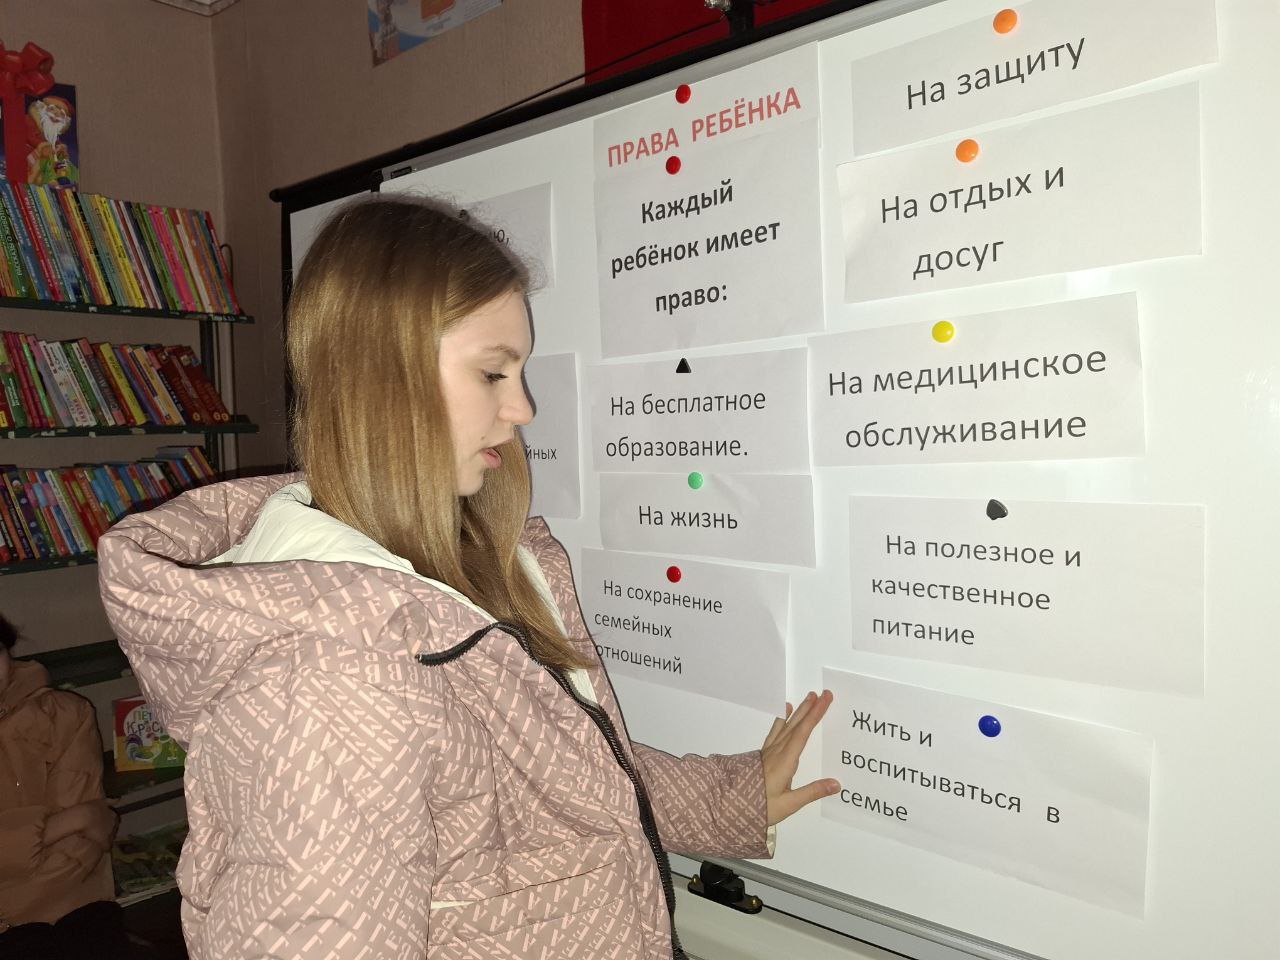 ПРАВА РЕБЁНКА
Каждый
ребёнок имеет
право:
На бесплатное
образование.
На жизнь
На сохранение
семейных
отношений
йных
На защиту
На отдых и
досуг
На медицинское
обслуживание
На полезное и
качественное
питание
Жить и
воспитываться в
семье